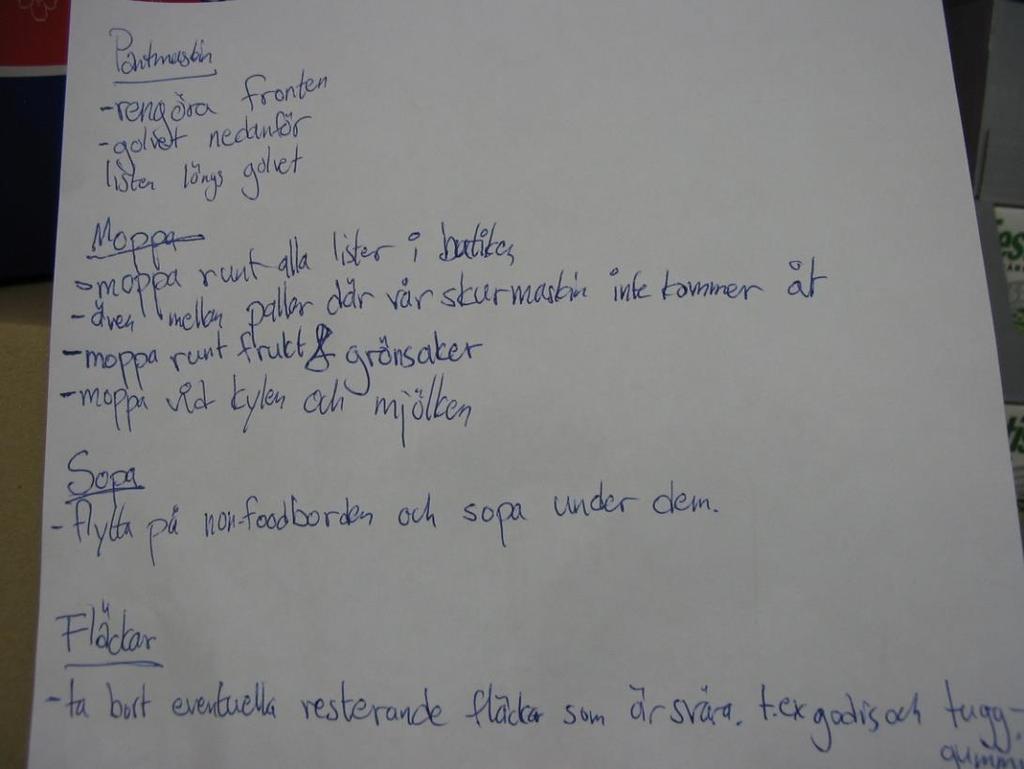 Pantmaskin
-rengöra fronten
-golvet nedanför
listen längs golvet
Moppa
-moppa runt alla lister i butiken
-även mellan pallar där vår skurmaskin inte kommer åt
-moppa runt frukt & grönsaker
-moppa vid kylen och mjölken
Sopa
-flytta på non-foodborden och sopa under dem.
Fläckar
-ta bort eventuella resterande fläckar som är svåra. t.ex godis och tugg-
gummi